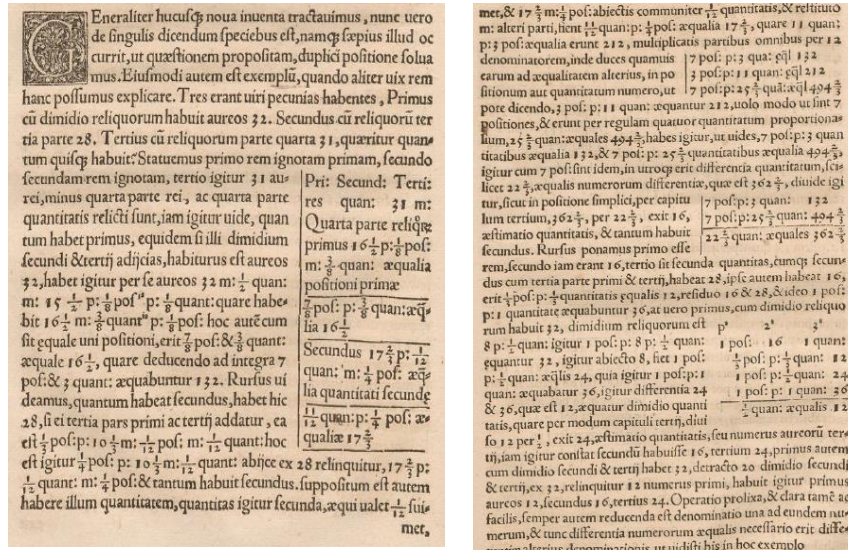 GEneraliter hucusqȝ noua inuenta tractauimus, nunc uero
de singulis dicendum speciebus est, namqȝ sæpius illud oc
currit, ut quæstionem propositam, duplici positione solua
mus. Eiusmodi autem est exemplũ, quando aliter uix rem
hanc possumus explicare. Tres erant uiri pecunias habentes, Primus
cũ dimidio reliquorum habuit aureos 32. Secundus cũ reliquorũ ter
tia parte 28. Tertius cũ reliquorum parte quarta 31, quæritur quan-
tum quisqȝ habuit? Statuemus primo rem ignotam primam, secundo
secundam rem ignotam, tertio igitur 31 au-
rei, minus quarta parte rei, ac quarta parte
quantitatis relicti sunt, iam igitur uide, quan
tum habet primus, equidem si illi dimidium
secundi & tertij adijcias, habiturus est aureos
32, habet igitur per se aureos 32 m: 1/2 quan:
m: 15 1/2 p: 1/8 pos p: 1/8 quant: quare habe-
bit 16 1/2 m: 3/8 quant p: 1/8 pos: hoc autẽ cum
sit equale uni positioni, erit 7/8 pos: & 3/8 quant:
æquale 16 1/2, quare deducendo ad integra 7
pos: & 3 quant: æquabuntur 132. Rursus ui
deamus, quantum habeat secundus, habet hic
28, si ei tertia pars primi ac tertij addatur, ea
est 1/3 pos: p: 10 1/3 m: 1/12 pos: m: 1/12 quant: hoc
est igitur 1/4 pos: p: 10 1/3 m: 1/12 quant: abijce ex 28 relinquitur, 17 2/3 p:
1/12 quant: m: 1/4 pos: & tantum habuit secundus. suppositum est autem
habere illum quantitatem, quantitas igitur secunda, æqui ualet 1/12 sui-
met,
Pri: Secund: Terti:
res quan: 31 m:
Quarta parte reliqꝫ
primus 16 1/2 p: 1/8 pos:
m: 3/8 quan: æqualia
positioni primæ
7/8 pos: p: 3/8 quan: æq̃-
lia 16 1/2
Secundus 17 2/3 p: 1/12
quan: m: 1/4 pos: æq̃-
lia quantitati secundę
11/12 quan: p: 1/4 pos: æ-
qualiæ 17 2/3
met, & 17 2/3 m: 1/4 pos: abiectis communiter 1/12 quantitatis, & restituto
m: alteri parti, fient 11/12 quan: p: 1/4 pos: æqualia 17 2/3, quare 11 quan:
p: 3 pos: æqualia erunt 212, multiplicatis partibus omnibus per 12
denominatorem, inde duces quamuis
earum ad æqualitatem alterius, in po
sitionum aut quantitatum numero, ut
7 pos: p: 3 quã: æq̃l 132
3 pos: p: 11 quan: æq̃l 212
7 pos: p: 25 2/3 quã: æq̃l 494 2/3
pote dicendo, 3 pos: p: 11 quan: æquantur 212, uolo modo ut sint 7
positiones, & erunt per regulam quatuor quantitatum proportiona-
lium, 25 2/3 quan: æquales 494 2/3, habes igitur, ut uides, 7 pos: p: 3 quan
titatibus æqualia 132, & 7 pos: p: 25 2/3 quantitatibus æqualia 494 2/3,
igitur cum 7 pos: sint idem, in utroqȝ erit differentia quantitatum, sci-
licet 22 2/3, æqualis numerorum differentiæ, quæ est 362 2/3, diuide igi
tur, sicut in positione simplici, per capitu
lum tertium, 362 2/3, per 22 2/3, exit 16,
æstimatio quantitatis, & tantum habuit
secundus. Rursus ponamus primo esse
7 pos: p: 3 quan: 132
7 pos: p: 25 2/3 quan: 494 2/3
22 2/3 quan: æquales 362 2/3
rem, secundo iam erant 16, tertio sit secunda quantitas, cumqȝ secun-
dus cum tertia parte primi & tertij, habeat 28, ipse autem habeat 16,
erit 1/3 pos: p: 1/3 quantitatis ęqualis 12, residuo 16 & 28, & ideo 1 pos:
p: 1 quantitate æquabuntur 36, at uero primus, cum dimidio reliquo
rum habuit 32, dimidium reliquorum est
8 p: 1/2 quan: igitur 1 pos: p: 8 p: 1/2 quan:
ęquantur 32, igitur abiecto 8, fiet 1 pos:
p: 1/2 quan: æq̃lis 24, quia igitur 1 pos: p: 1
quan: æquabatur 36, igitur differentia 24
& 36, quæ est 12, æquatur dimidio quanti
tatis, quare per modum capituli tertij, diui
pᵃ 2ᵃ 3ᵃ
1 pos: 16 1 quan:
1/3 pos: p: 1/3 quan: 12
1 pos: p: 1/2 quan: 24
1 pos: p: 1 quan: 36
1/2 quan: æqualis 12
so 12 per 1/2, exit 24, æstimatio quantitatis, seu numerus aureorũ ter-
tij, iam igitur constat secundũ habuisse 16, tertium 24, primus autem
cum dimidio secundi & tertij habet 32, detracto 20 dimidio secundi
& tertij, ex 32, relinquitur 12 numerus primi, habuit igitur primus
aureos 12, secundus 16, tertius 24. Operatio prolixa, & clara tamẽ ac
facilis, semper autem reducenda est denominatio una ad eundem nu-
merum, & tunc differentia numerorum æqualis necessario erit diffe-
alterius denominationis, ut uidisti his in hoc exemplo